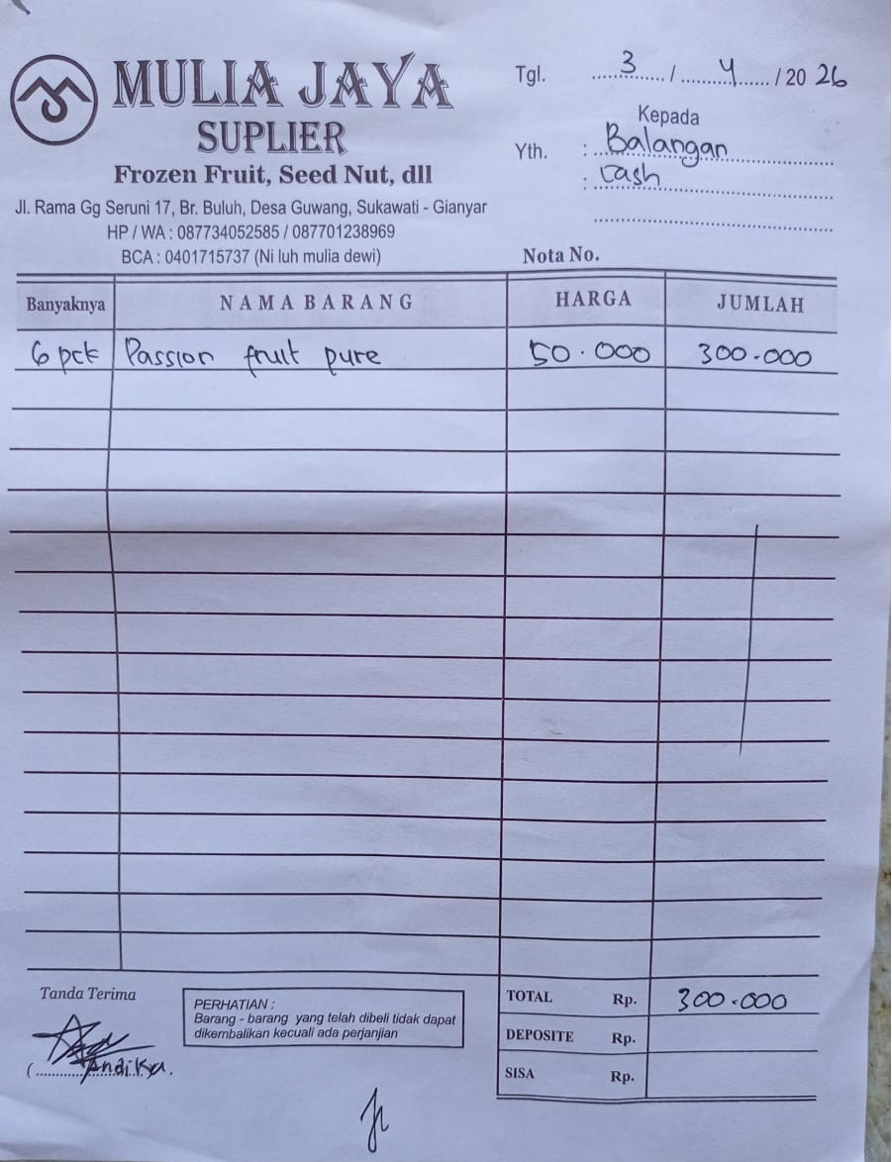 MULIA JAYA
SUPLIER
Frozen Fruit, Seed Nut, dll
Jl. Rama Gg Seruni 17, Br. Buluh, Desa Guwang, Sukawati - Gianyar
HP / WA : 087734052585 / 087701238969
BCA : 0401715737 (Ni luh mulia dewi)
Tgl. 3 / 4 / 20 26
Kepada
Yth. : Balangan
: cash
Nota No.
Banyaknya NAMA BARANG HARGA JUMLAH
6 pck Passion fruit pure 50.000 300.000
Tanda Terima
(Andika.
PERHATIAN :
Barang - barang yang telah dibeli tidak dapat
dikembalikan kecuali ada perjanjian
TOTAL Rp. 300.000
DEPOSITE Rp.
SISA Rp.